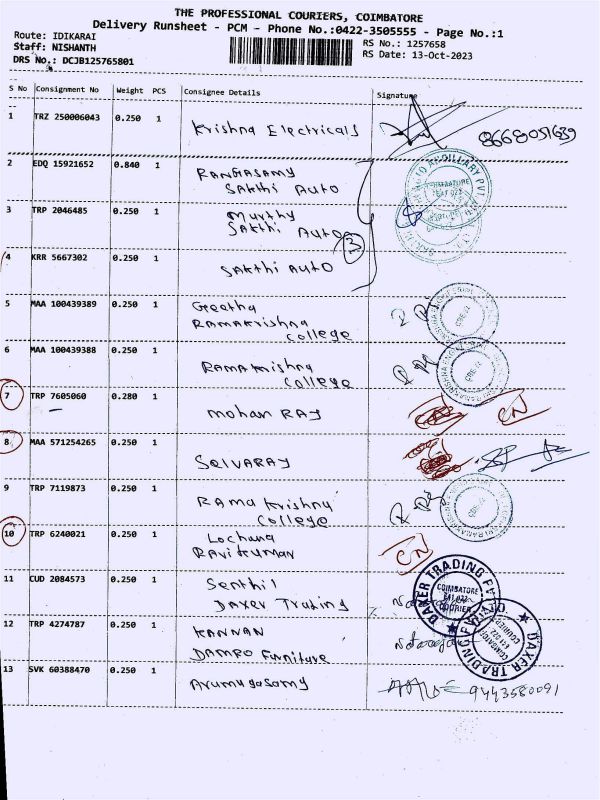 THE PROFESSIONAL COURIERS, COIMBATORE
Delivery Runsheet - PCM - Phone No.:0422-3505555 - Page No.:1
Route: IDIKARAI
Staff: NISHANTH
RS No.: 1257658
DRS No.: DCJB125765801
RS Date: 13-Oct-2023
S No Consignment No Weight PCS Consignee Details Signature
1 TRZ 250006043 0.250 1 Krishna Electricals 8668051639
2 EDQ 15921652 0.840 1 RANGASAMY
SAKthi AUTO
3 TRP 2046485 0.250 1 Murthy
SAKthi AUTO
3
4 KRR 5667302 0.250 1 SAKthi AUTO
5 MAA 100439389 0.250 1 Geetha
RAMAKrishna
College
6 MAA 100439388 0.250 1 RAMAKrishna
College
7 TRP 7605060 0.280 1 Mohan RAJ CN
8 MAA 571254265 0.250 1 SelVARAJ
9 TRP 7119873 0.250 1 RAMA Krishna
College
10 TRP 6240021 0.250 1 Lochana
RAVIKUMAR CN
11 CUD 2084573 0.250 1 Senthil
DAXER Trading
DAXER TRADING
COIMBATORE
641 022
COURIER
12 TRP 4274787 0.250 1 KANNAN
DAMRO Furniture
DAXER TRADING
COIMBATORE
641 022
COURIER
13 SVK 60388470 0.250 1 Arumugasamy 9443580091